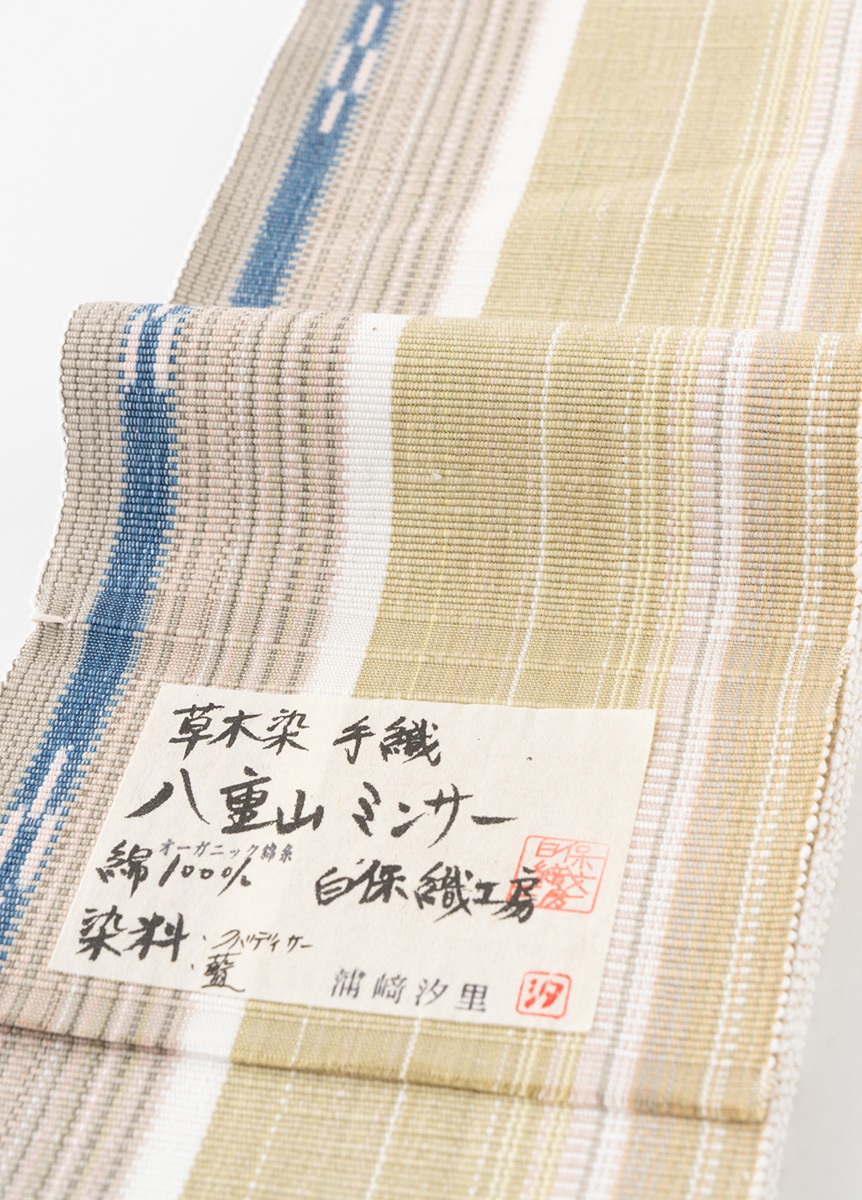 草木染 手織
八重山 ミンサー
オーガニック綿糸
綿 100%
白保織工房
染料・フバディサー
・藍
浦﨑汐里
汐